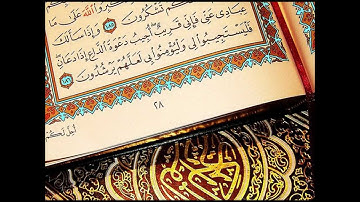 ٱللَّهَ عَلَىٰ مَا
كُمْ تَشْكُرُونَ ١٨٥ وَإِذَا سَأَلَكَ
عِبَادِى عَنِّى فَإِنِّى قَرِيبٌ أُجِيبُ دَعْوَةَ ٱلدَّاعِ إِذَا دَعَانِ
فَلْيَسْتَجِيبُوا۟ لِى وَلْيُؤْمِنُوا۟ بِى لَعَلَّهُمْ يَرْشُدُونَ ١٨٦
٢٨
أُحِلَّ لَكُمْ